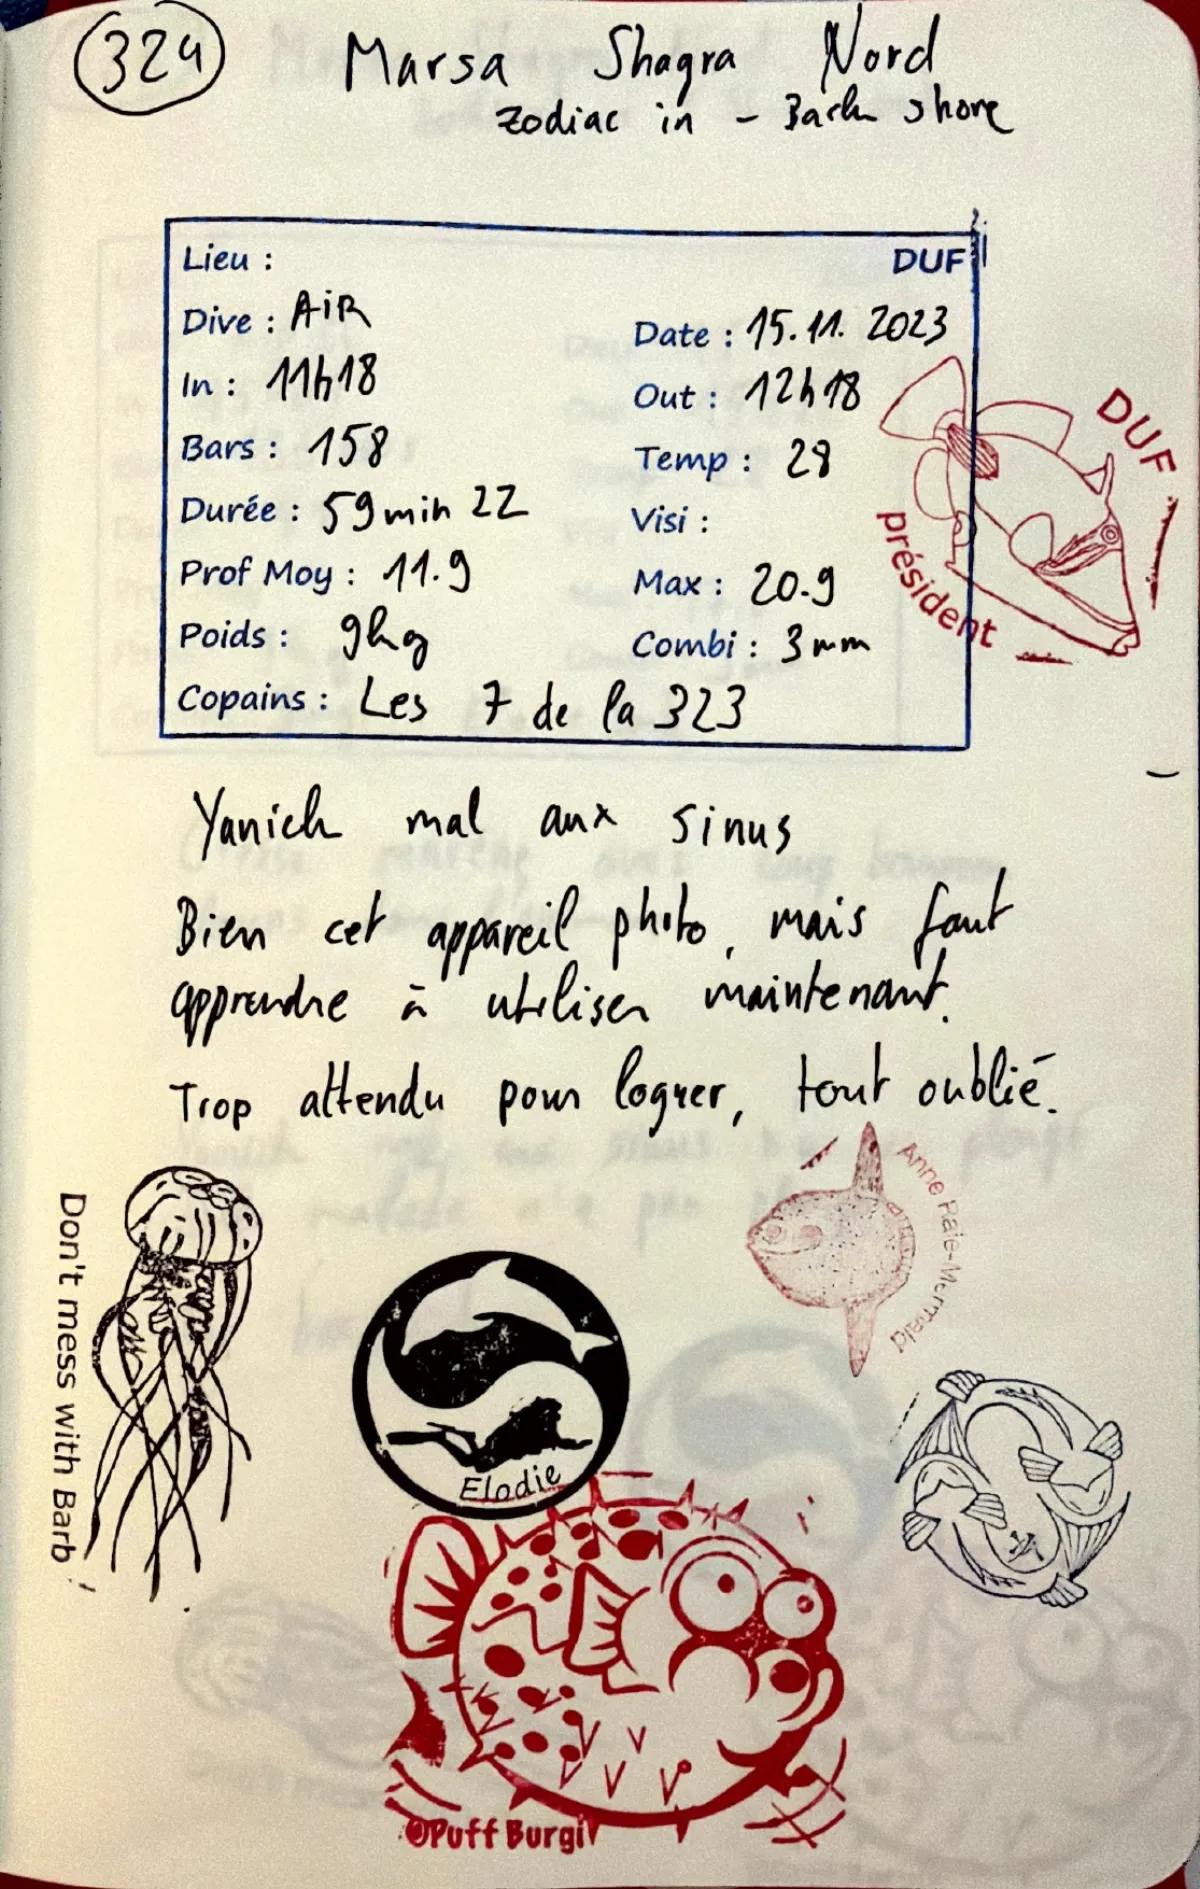 324
Marsa Shagra Nord
Zodiac in - Back shore
Lieu :
DUF
Dive : AiR
Date : 15.11. 2023
In : 11h18
Out : 12h18
Bars : 158
Temp : 28
Durée : 59min 22
Visi :
Prof Moy : 11.9
Max : 20.9
Poids : 9kg
Combi : 3mm
Copains : Les 7 de la 323
DUF
président
Yanick mal aux sinus
Bien cet appareil photo, mais faut
apprendre à utiliser maintenant.
Trop attendu pour logger, tout oublié.
Don't mess with Barb !
Anne Raie-Mermaid
Elodie
©Puff Burgi